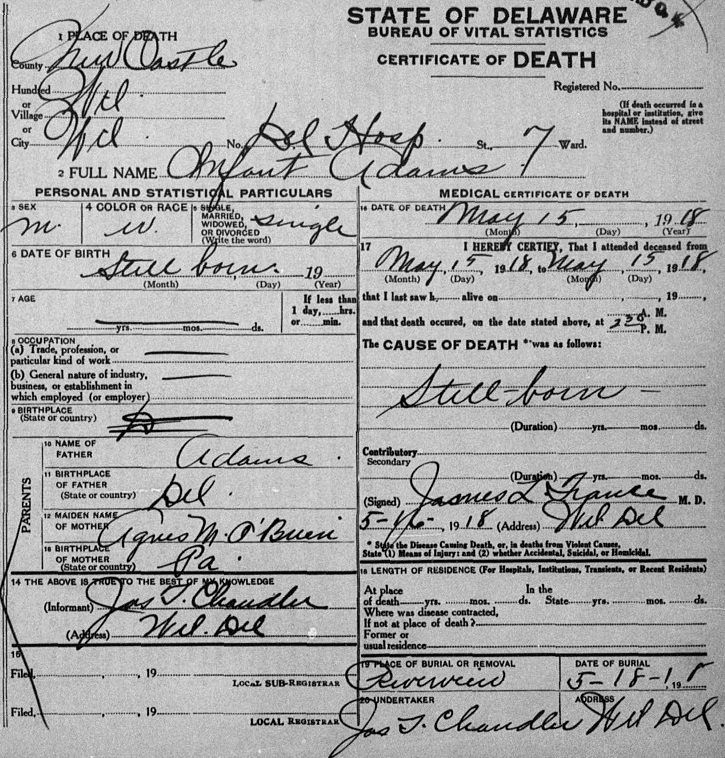 STATE OF DELAWARE
BUREAU OF VITAL STATISTICS
CERTIFICATE OF DEATH
1 PLACE OF DEATH
County New Castle
Registered No.
Hundred Wil.
or
Village
or
City Wil No. Del Hosp. St., 7 Ward.
(If death occurred in a
hospital or institution, give
its NAME instead of street
and number.)
2 FULL NAME Infant Adams
PERSONAL AND STATISTICAL PARTICULARS
3 SEX m. 4 COLOR OR RACE w. 5 SINGLE, MARRIED, WIDOWED, OR DIVORCED (Write the word) single
6 DATE OF BIRTH
Still born. 19
(Month) (Day) (Year)
7 AGE
yrs. mos. ds.
If less than
1 day, hrs.
or min.
8 OCCUPATION
(a) Trade, profession, or
particular kind of work
(b) General nature of industry,
business, or establishment in
which employed (or employer)
9 BIRTHPLACE
(State or country)
PARENTS
10 NAME OF
FATHER Adams.
11 BIRTHPLACE
OF FATHER
(State or country) Del.
12 MAIDEN NAME
OF MOTHER Agnes M. O'Brien
13 BIRTHPLACE
OF MOTHER
(State or country) Pa.
14 THE ABOVE IS TRUE TO THE BEST OF MY KNOWLEDGE
(Informant) Jas T. Chandler
(Address) Wil. Del
15
Filed, , 19
LOCAL SUB-REGISTRAR
Filed, , 19
LOCAL REGISTRAR
MEDICAL CERTIFICATE OF DEATH
16 DATE OF DEATH May 15, 1918
(Month) (Day) (Year)
17 I HEREBY CERTIFY, That I attended deceased from
May, 15, 1918, to May, 15, 1918,
(Month) (Day) (Month) (Day)
that I last saw h alive on , 19 ,
and that death occured, on the date stated above, at 230 A. M. P. M.
The CAUSE OF DEATH * was as follows:
Still-born -
(Duration) yrs. mos. ds.
Contributory
Secondary
(Duration) yrs. mos. ds.
(Signed) James L France M. D.
5-16-, 1918 (Address) Wil Del
* State the Disease Causing Death, or, in deaths from Violent Causes,
State (1) Means of Injury: and (2) whether Accidental, Suicidal, or Homicidal.
18 LENGTH OF RESIDENCE (For Hospitals, Institutions, Transients, or Recent Residents)
At place In the
of death yrs. mos. ds. State yrs. mos. ds.
Where was disease contracted,
If not at place of death?
Former or
usual residence
19 PLACE OF BURIAL OR REMOVAL DATE OF BURIAL
Riverview 5-18-1918
20 UNDERTAKER ADDRESS
Jas T. Chandler Wil Del